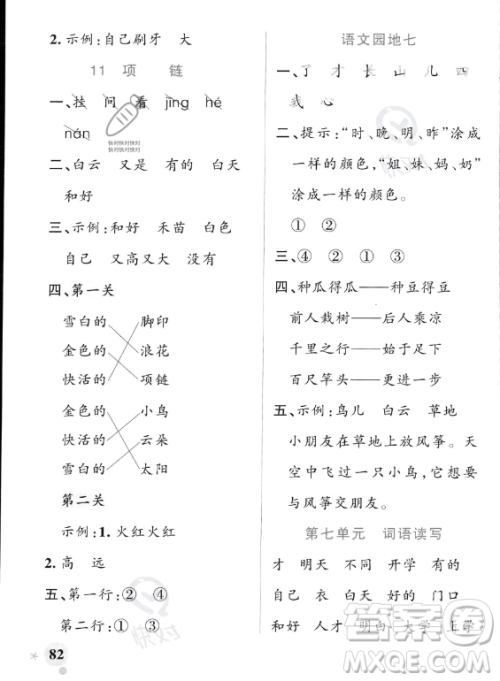 2. 示例：自己刷牙 大
11 项 链
一、挂 问 看 jīng hé
nán
快对快对快对
快对快对快对
二、白云 又是 有的 白天
和好
三、示例：和好 禾苗 白色
自己 又高又大 没有
四、第一关
雪白的 脚印
金色的 浪花
快活的 项链
金色的 小鸟
快活的 云朵
雪白的 太阳
第二关
示例：1. 火红火红
2. 高 远
五、第一行：② ④
第二行：① ③
82
语文园地七
一、了 才 长 山 儿 四
我 心
二、提示：“时、晚、明、昨”涂成
一样的颜色，“姐、妹、妈、奶”
涂成一样的颜色。
① ②
三、④ ② ① ③
四、种瓜得瓜——种豆得豆
前人栽树——后人乘凉
千里之行——始于足下
百尺竿头——更进一步
五、示例：鸟儿 白云 草地
小朋友们在草地上放风筝。
天空中飞过来一只小鸟，它要
和风筝交朋友。
第七单元 词语读写
才 明天 不同 开学 有的
自己 衣 白天 好的 门口
和好 人才 明白 大学 上学
快对
答案圈
MXQE.COM